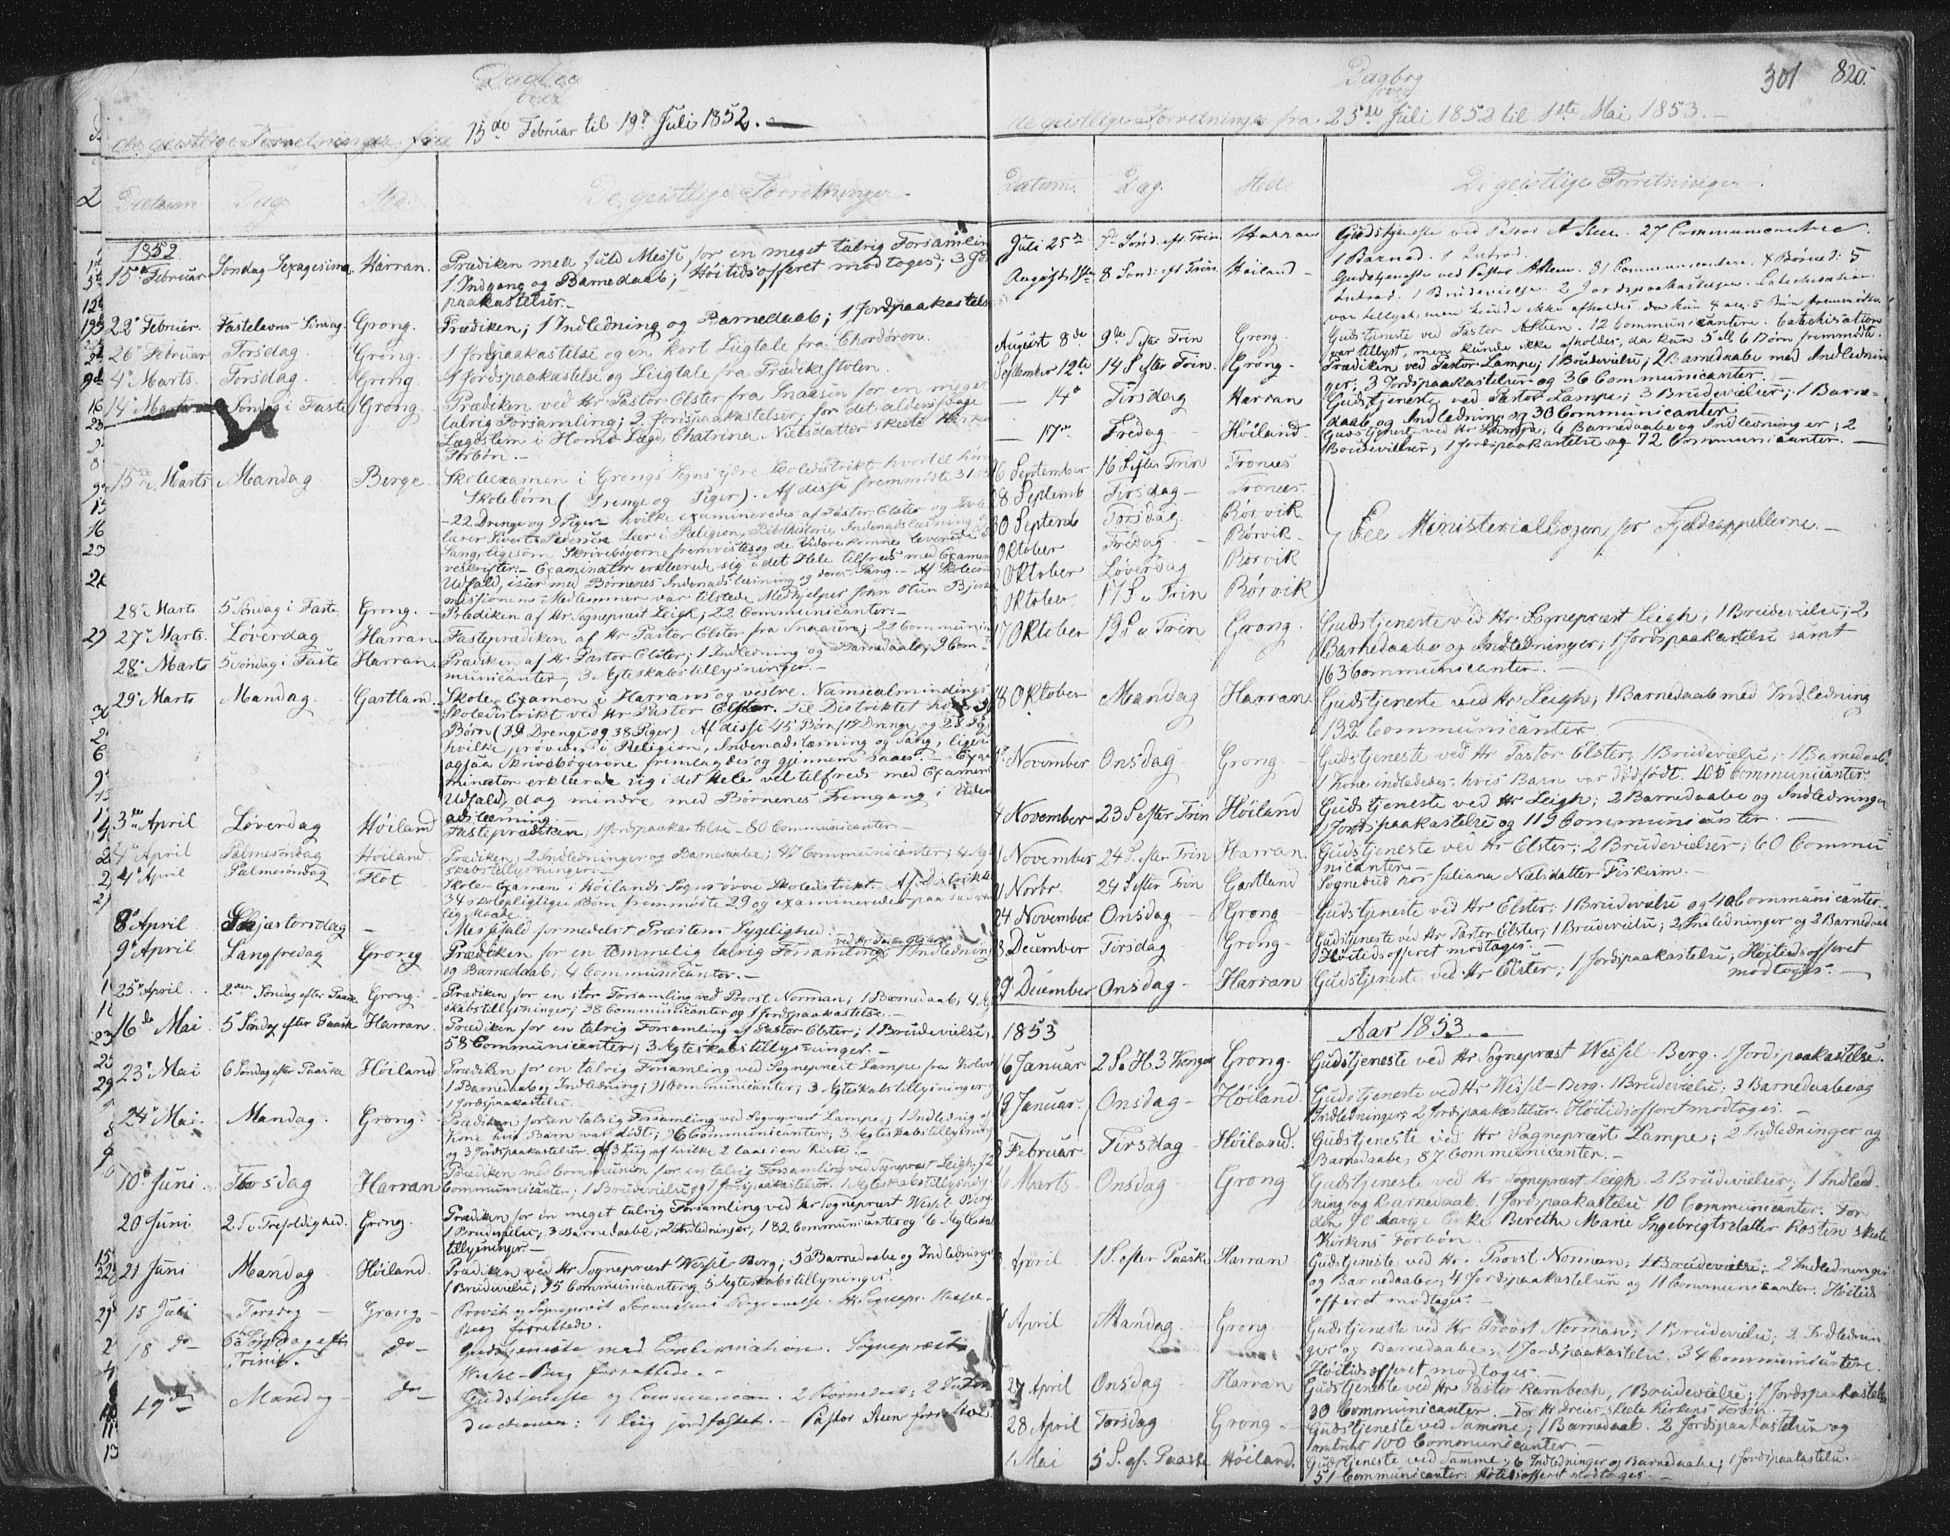 Dagbog
over
de geistlige Forretninger fra 15de Februar til 19de Juli 1852.
Datum Dag Sted De geistlige Forretninger
1852
15de Februar Søndag Sexagesima Harran. Prædiken med fuld Messe for en meget talrig Forsamling
1 Indgang og Barnedaab; Høitidsofferet modtoges; 3 Jord-
paakastelser.
22de Februar. Fastelavns Søndag Grong. Prædiken; 1 Indledning og Barnedaab; 1 Jordpaakastelse
26de Februar Torsdag Grong. 1 Jordpaakastelse og en kort Liigtale fra Chordøren.
4de Marts. Torsdag. Grong. 1 Jordspaakastelse og Liigtale fra Prædikestolen.
14de Marts Søndag i Faste Grong. Prædiken ved Hr Pastor Elster fra Snaasen for en meget
talrig Forsamling; 2 Jordspaakastelser; for det aldersvage
Lægdslem i Homo Lægd Chatrina Nielsdatter skeete Kirkens
Forbøn.
15de Marts Mandag Berge. Skoleexamen i Grongs Sogns Skoledistrikt hvortil høre 31
Skolebørn (Drenge og Piger). Af disse fremmødte 31
22 Drenge og 9 Piger hvilke examineredes af Pastor Elster og
lærer Sivert Pedersen Leer i Religion, Bibelhistorie, Indenadslæsning
Sang, ligesom Skrivebøgerne fremvistes og de Videre komne leverede
- Examinator erklærede sig i det Hele tilfreds med Examens
Udfald, især med Børnenes Indenadslæsning og deres Sang. Af Skolecom-
missionens Medlemmer var tilstede Medhjelper John Olsen Bjerken
28de Marts 5 Søndag i Faste Grong. Prædiken af Hr Sognepræst Leigh; 22 Communicanter.
27de Marts. Løverdag Harran Fasteprædiken af Hr Pastor Elster fra Snaasen; 22 Communicanter
28de Marts 5 Søndag i Faste Harran. Prædiken af Hr Pastor Elster; 1 Indledning og Barnedaab; 9 Com-
municanter; 3 Ægteskabstillysninger.
29de Marts Mandag. Gartland. Skole-Examen i Harrans og vestre Namsealmindings
Skoledistrikt ved Hr Pastor Elster. Til Distriktet høre
Børn ( Drenge og 38 Piger) Af disse 45 Børn (17 Drenge og 28 Piger
hvilke prøvedes i Religion, Indenadslæsning og Sang, liger
ogsaa Skrivebøgerne fremlagdes og gjennem saaes. - Exa-
minator erklærede sig i det Hele vel tilfreds med Examens
Udfald, dog mindre med Børnenes Fremgang i Inden-
adslæsning.
3de April Løverdag Høiland Fasteprædiken; 1 Jordspaakastelse - 80 Communicanter -
4de April Palmesøndag Høiland. Prædiken; 2 Indledninger og Barnedaabe; 47 Communicanter; 4 Ægte-
skabstillysninger.
4de April Palmesøndag Flot Skole-Examen i Høilands Sogns øvre Skoledistrikt. Af Distriktets
34 skolepligtige Børn fremmødte 29 og examineredes paa sædvan-
lig Maade.
8de April Skjærtorsdag - Messefald formedelst Præstens Sygelighed.
9de April Langfredag Grong Prædiken for en temmelig talrig Forsamling ved Hr Pastor Elster; 1 Indledning
og Barnedaab; 4 Communicanter.
25de April. 2den Søndag efter Paaske Grong. Prædiken for en stor Forsamling ved Provst Norman; 1 Barnedaab; 4 Æg
skabstillysninger; 38 Communicanter og 1 Jordspaakastelse.
16de Mai 5 Søndag efter Paaske Harran. Prædiken for en talrig Forsamling af Pastor Elster; 1 Brudevielse,
58 Communicanter; 3 Ægteskabstillysninger.
23de Mai 6 Søndag efter Paaske Høiland Prædiken for en talrig Forsamling ved Sognepræst Lampe fra Kolvereid
1 Barnedaab og Indledning; 91 Communicanter; 3 Ægteskabstillysninger
1 Jordspaakastelse.
24de Mai. Mandag. Grong. Prædiken for en talrig Forsamling ved Sognepræst Lampe; 1 Indledning af
Kone hvis Barn var dødt; 96 Communicanter; 3 Ægteskabstillysninger
og 3 Jordspaakastelser af 3 Liig af hvilke 2 laae i en Kiste.
10de Juni. Torsdag Harran Prædiken med Communion for en talrig Forsamling ved Sognepræst Leigh. 72
Communicanter; 1 Brudevielse og 1 Jordspaakastelse. 1 Ægteskabstillysning
20 Juni 2 S. e Trefoldighed. Grong. Prædiken for en meget talrig Forsamling ved Hr Sognepræst Wessel-Berg
1 Brudevielse; 3 Barnedaabe; 2 Indledninger; 182 Communicanter og 6 Ægteskabs-
tillysninger.
21 Juni Mandag Høiland. Prædiken ved Hr Sognepræst Wessel-Berg; 5 Barnedaabe og Indledninger
1 Brudevielse; 95 Communicanter og 5 Ægteskabstillysninger.
15 Juli Torsdag - Grong Provst og Sognepræst Sørensens Begravelse. Hr Sognepr. Wessel-
Berg forrettede.
18 do 6te Søndag efter do - Gudstjeneste med Confirmation. Sognepræst
Trinit. Wessel-Berg forrettede. -
19de Mandag - do - Gudstjeneste og Communion - 2 Børnedaab; 2 Intro-
ductioner; 1 Liig jordfæstet. - Pastor Steen forrettede.
301 820.
Dagbog
over
de geistlige Forretninger fra 25de Juli 1852 til 1ste Mai 1853. -
Datum. Dag. Sted De geistlige Forretninger.
Juli 25de 7de Sønd. eft. Trin Harran Gudstjeneste ved Pastor A Steen. 27 Communicantere.
1 Barned. 1 Introd.
August 1ste 8 Sønd. eft Trin. Høiland - Gudstjeneste ved Pastor A Steen. 31 Communicantere. 5
Introd. 1 Brudevielse. 2 Jordspaakastelser. Catechisation
var tillyst, men kunde ikke afholdes da kun 4 a 5 Børn fremmødte
August 8de 9de S efter Trin Grong. Gudstjeneste ved Pastor ASteen. 12 Communicantere. Catechisation
var tillyst, men kunde ikke afholdes, da kun 5 a 6 Børn fremmødte.
September 12te 14 S efter Trin. Grong. Prædiken ved Pastor Lampe; 1 Brudevielse; 2 Barnedaabe med Indlednin-
ger; 3 Jordspaakastelser og 36 Communicanter.
- 14de Tirsdag Harran Gudstjeneste ved Pastor Lampe; 3 Brudevielser; 1 Barne-
daab og Indledning og 30 Communicanter
- 17de Fredag - Høiland. Gudstjeneste ved Hr Lampe; 6 Barnedaabe og Indledninger; 2
Brudevielser; 1 Jordspaakastelse og 72 Communicanter. -
6 September 16 S efter Trin Trones
8 Septemb Tirsdag - Trones.
30 Septemb Torsdag. Rørvik
Oktober Fredag - Rørvik - See Ministerialbogen for Fjeldcappellerne. -
Oktober Løverdag Rørvik
Oktober. 17 S. e Trin Rørvik
17 Oktober 19 S. e Trin Grong. Gudstjeneste ved Hr Sognepræst Leigh; 1 Brudevielse; 2
Barnedaabe og Indledninger; 1 Jordspaakastelse samt
163 Communicanter.
18 Oktober Mandag Harran Gudstjeneste ved Hr Leigh; 1 Barnedaab med Indledning
132 Communicanter
November Onsdag Grong - Gudstjeneste ved Hr Pastor Elster; 1 Brudevielse; 1 Barnedaab.
1 Kone indlededes, hvis Barn var dødfødt. 105 Communicanter.
November 23 S efter Trin Høiland Gudstjeneste ved Hr Leigh; 2 Barnedaabe og Indledninger
1 Jordspaakastelse og 119 Communicanter. -
November 24 S. efter Trin Harran. Gudstjeneste ved Hr Elster; 2 Brudevielser; 60 Commu
nicanter. -
Novbr. 24 S efter Trin Gartland Sognebud hos Juliana Nielsdatter Fiskum. -
24 November Onsdag - Grong - Gudstjeneste ved Hr Elster; 1 Brudevielse og 40 Communicanter.
December Torsdag Grong - Gudstjeneste ved Hr Pastor Elster; 1 Brudevielse; 2 Indledninger og 2 Barnedaab
Høitidsofferet modtoges. -
29 December Onsdag - Harran Gudstjeneste ved Hr Elster; 1 Jordspaakastelse, Høitidsofferet
modtoges. -
1853 Aar 1853.
6 Januar 2 S. H. 3 Konger Grong. Gudstjeneste ved Hr Sognepræst Wessel-Berg. 1 Jordspaakastelse.
19 Januar. Onsdag - Høiland. Gudstjeneste ved Hr Wessel-Berg. 1 Brudevielse; 3 Barnedaabe og
Indledninger; 2 Jordspaakastelser. Høitidsofferet modtoges. -
Februar Tirsdag - Høiland. Gudstjeneste ved Hr Sognepræst Lampe; 2 Indledninger og
Barnedaabe, 87 Communicanter. -
6 Marts - Onsdag - Grong Gudstjeneste ved Hr Sognepræst Leigh. 2 Brudevielser; 1 Indled-
ning og Barnedaab, 1 Jordspaakastelse 10 Communicanter. For
den svage Enke Berethe Marie Ingebrigtsdatter Rosten skete
Kirkens Forbøn.
April 1 S. efter Paaske Harran Gudstjeneste ved Hr. Provst Norman; 1 Brudevielse; 2 Indledninger
og Barnedaabe; 4 Jordspaakastelser og 11 Communicanter. Høitids-
offeret modtoges. -
April Mandag. Grong. Gudstjeneste ved Hr Provst Norman; 1 Brudevielse; 2 Indlednin
ger og Barnedaabe; 1 Jordspaakastelse. 34 Communicantere.
Høitidsofferet modtoges.
27 April Onsdag - Harran Gudstjeneste ved Hr Pastor Rambech, 1 Brudevielse; 1 Jordspaakastelse
30 Communicanter. For Hr Dreier skete Kirkens Forbøn.
28 April Torsdag Grong - Gudstjeneste ved Samme; 1 Barnedaab. 2 Jordspaakastelser og
omtrent 100 Communicanter. -
1 Mai 5 S. ef. Paaske Høiland. Gudstjeneste ved Samme; 6 Indledninger og Barnedaabe; 1 Jordspaakastelse. -
51 Communicanter. Høitidsofferet modtoges. -